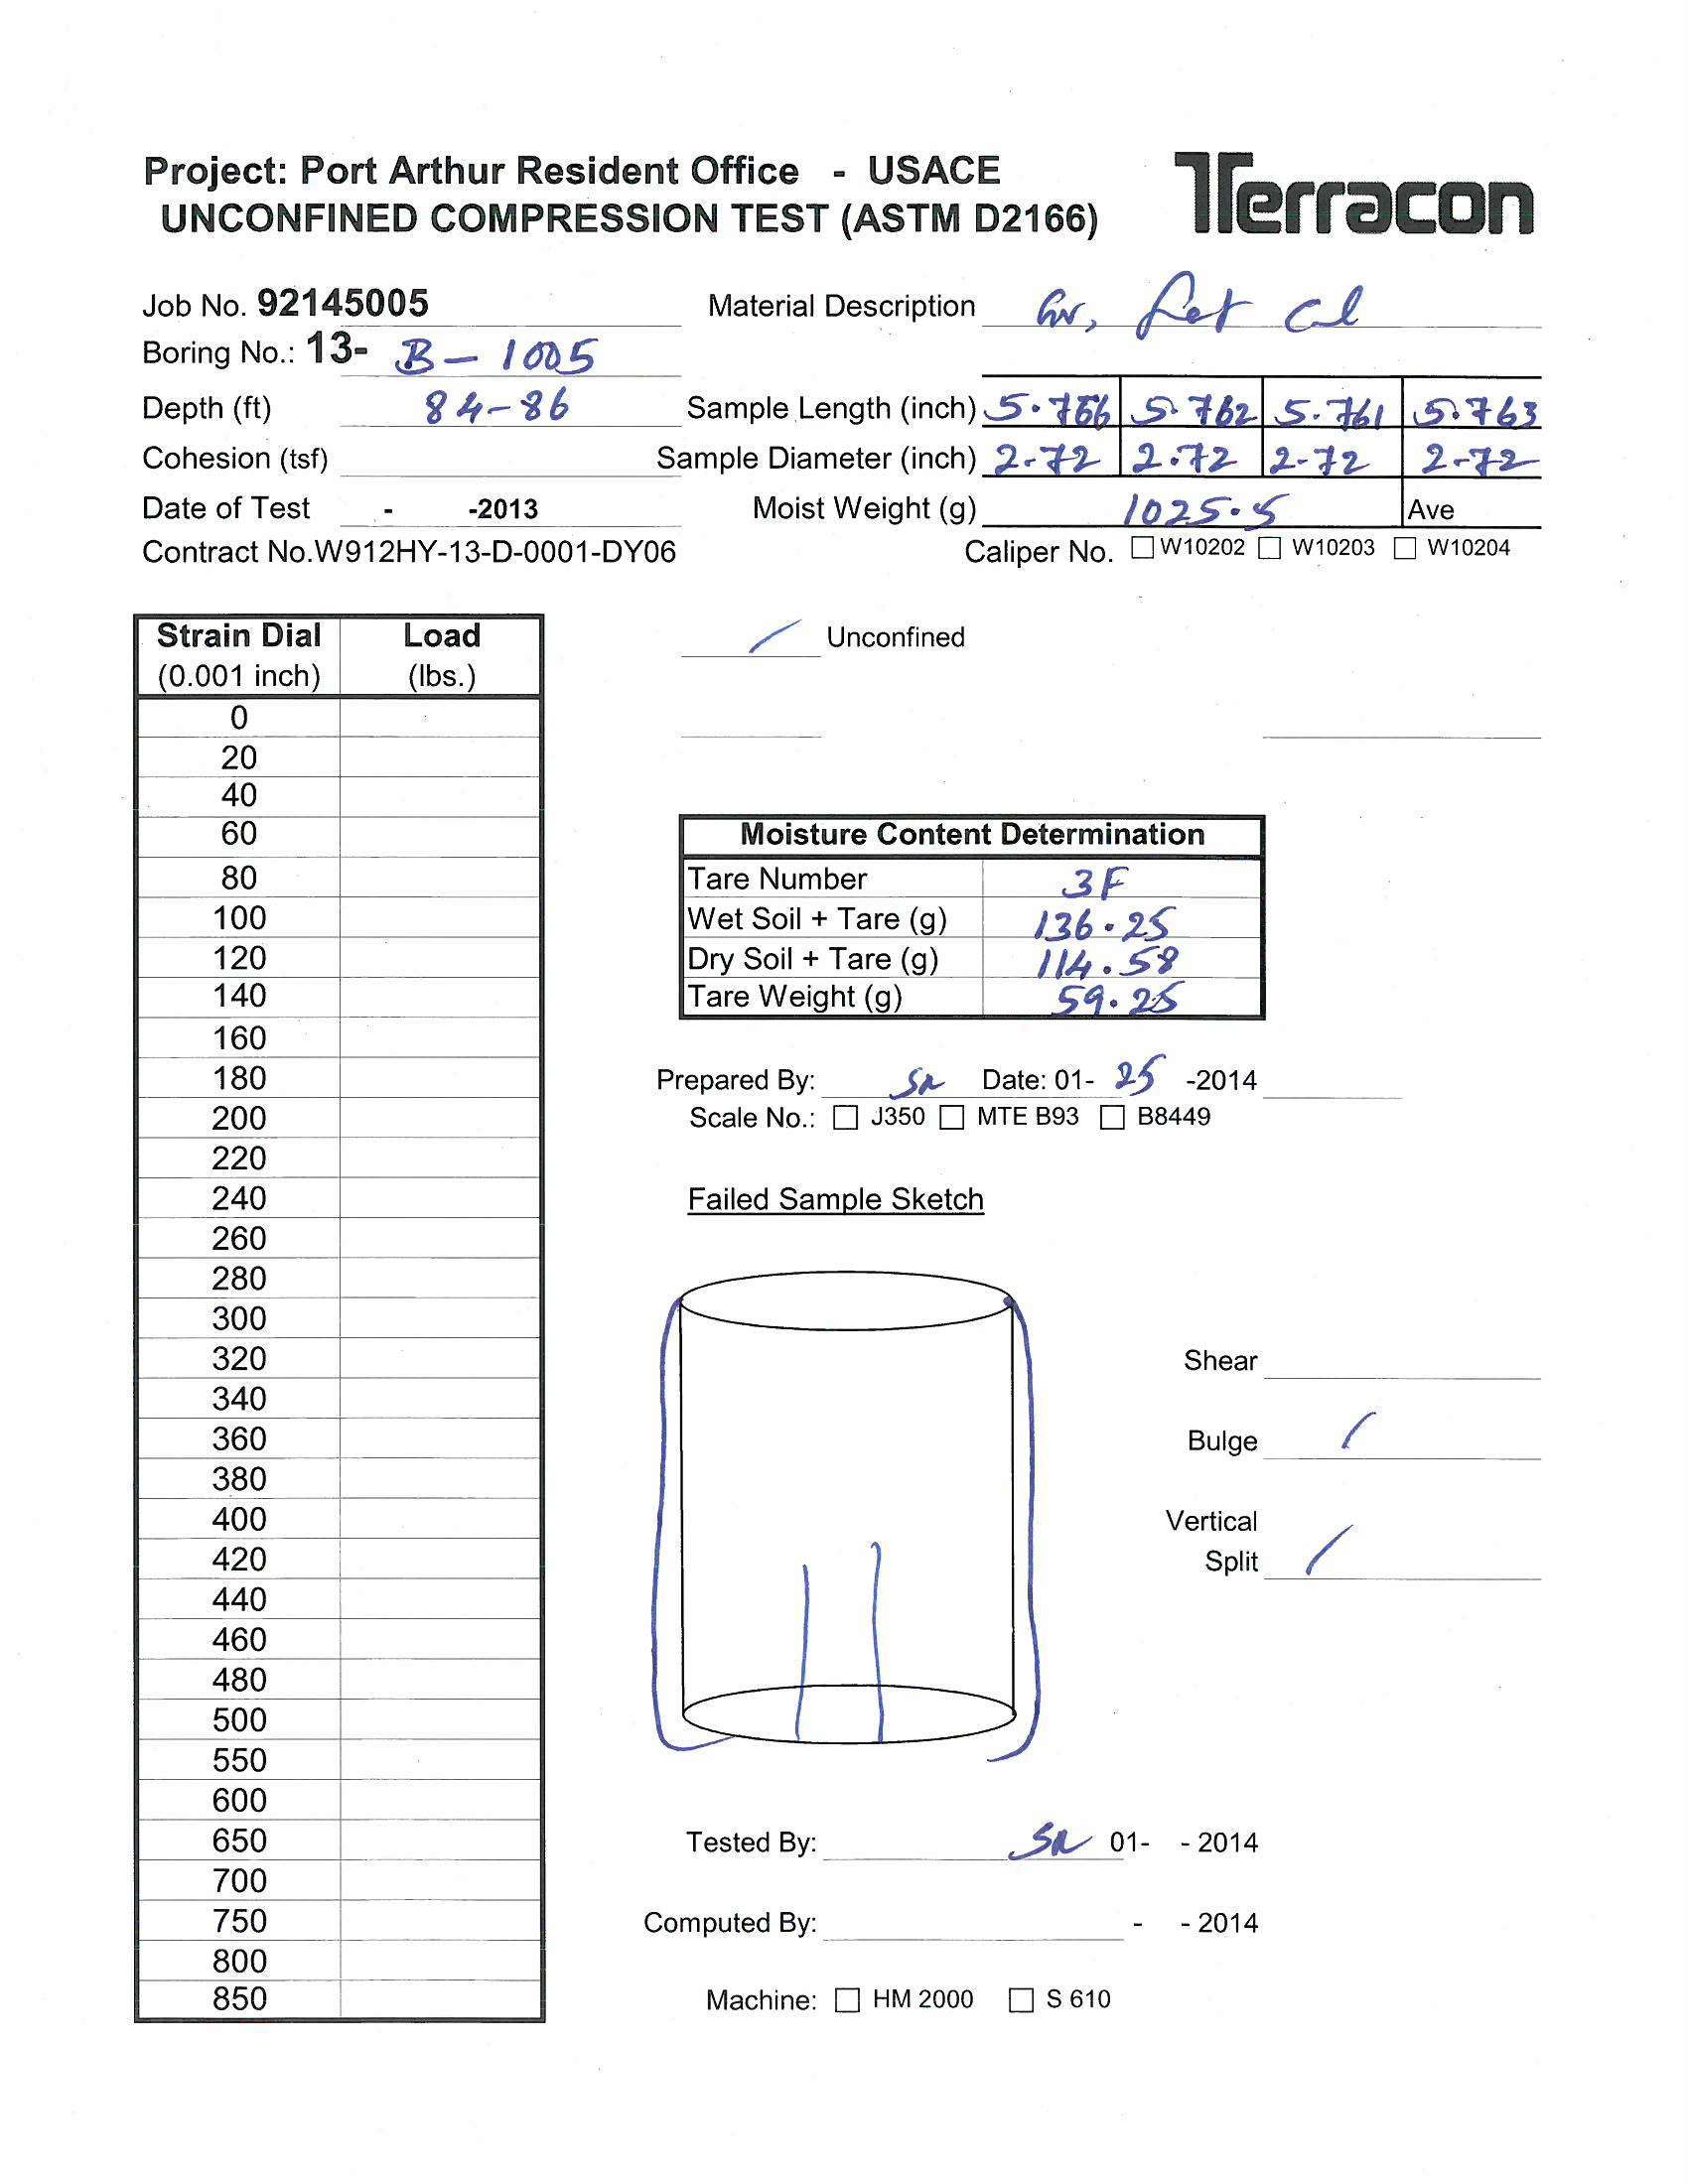 Project: Port Arthur Resident Office - USACE
UNCONFINED COMPRESSION TEST (ASTM D2166)
Terracon
Job No. 92145005
Material Description Gr, Fat Cl
Boring No.: 13- B - 1005
Depth (ft) 84-86
Sample Length (inch) 5.766 5.762 5.761 5.763
Cohesion (tsf)
Sample Diameter (inch) 2.72 2.72 2.72 2.72
Date of Test - -2013
Moist Weight (g) 1025.5 Ave
Contract No.W912HY-13-D-0001-DY06
Caliper No. W10202 W10203 W10204
Strain Dial Load
(0.001 inch) (lbs.)
0
20
40
60
80
100
120
140
160
180
200
220
240
260
280
300
320
340
360
380
400
420
440
460
480
500
550
600
650
700
750
800
850
/ Unconfined
Moisture Content Determination
Tare Number 3F
Wet Soil + Tare (g) 136.25
Dry Soil + Tare (g) 114.58
Tare Weight (g) 59.25
Prepared By: SR Date: 01- 25 -2014
Scale No.: J350 MTE B93 B8449
Failed Sample Sketch
Shear
Bulge /
Vertical
Split /
Tested By: SR 01- - 2014
Computed By: - - 2014
Machine: HM 2000 S 610